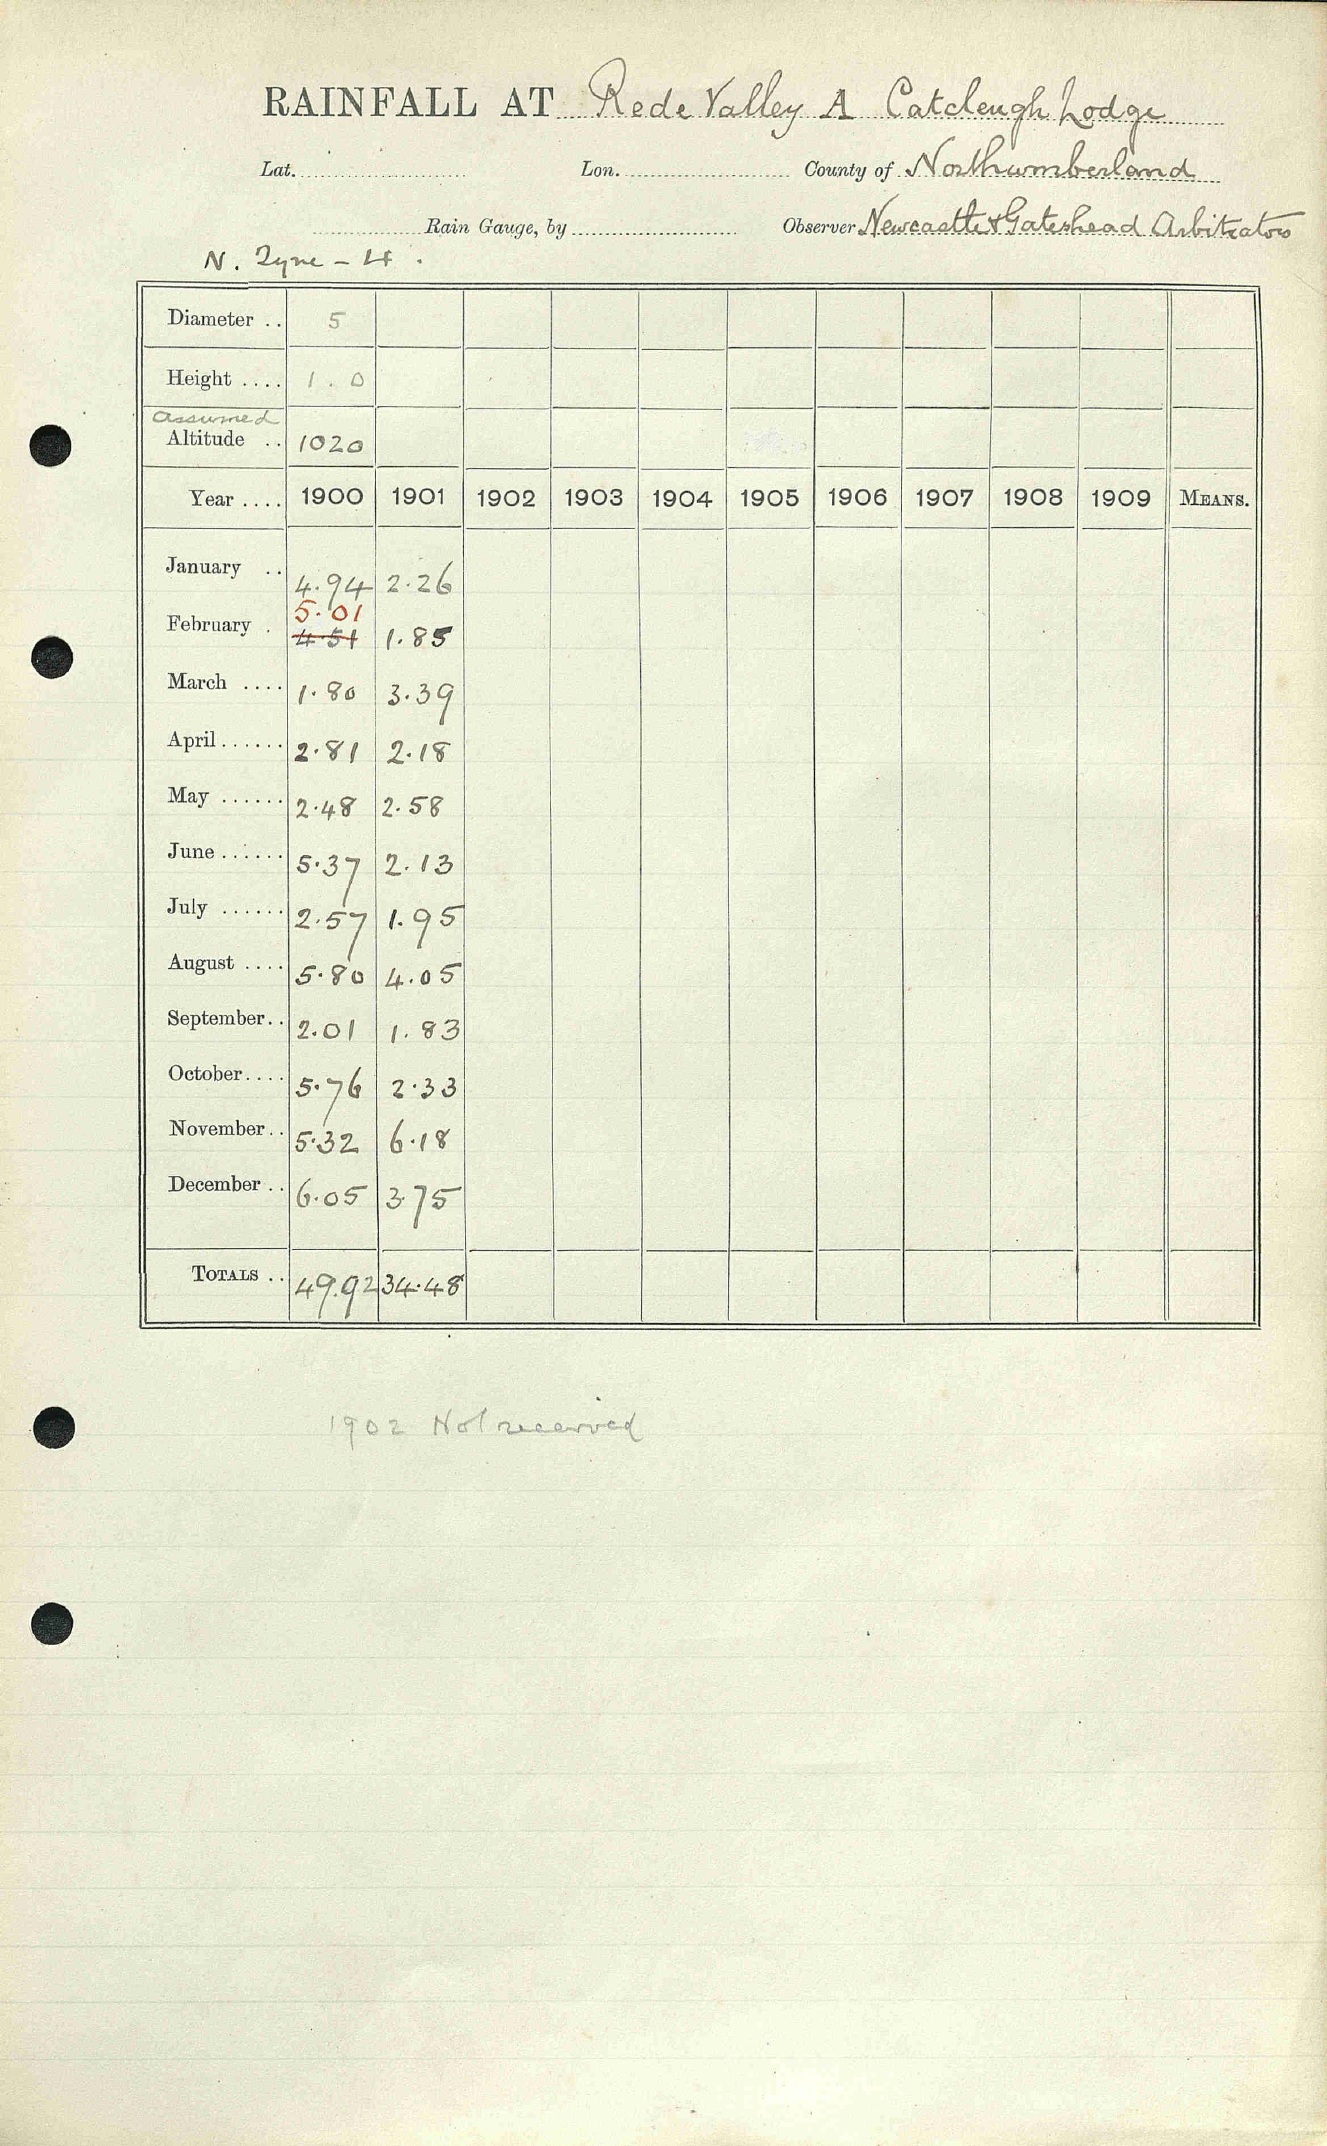 RAINFALL AT Rede Valley A Catcleugh Lodge
Lat. Lon. County of Northumberland
Rain Gauge, by Observer Newcastle & Gateshead Arbitrators
N. Tyne - 4.
Diameter .. 5
Height .... 1.0
assumed
Altitude .. 1020
Year .... 1900 1901 1902 1903 1904 1905 1906 1907 1908 1909 MEANS.
January .. 4.94 2.26
5.01
February . 4.51 1.85
March .... 1.80 3.39
April...... 2.81 2.18
May ...... 2.48 2.58
June ...... 5.37 2.13
July ...... 2.57 1.95
August .... 5.80 4.05
September.. 2.01 1.83
October.... 5.76 2.33
November.. 5.32 6.18
December .. 6.05 3.75
TOTALS .. 49.92 34.48
1902 Not received